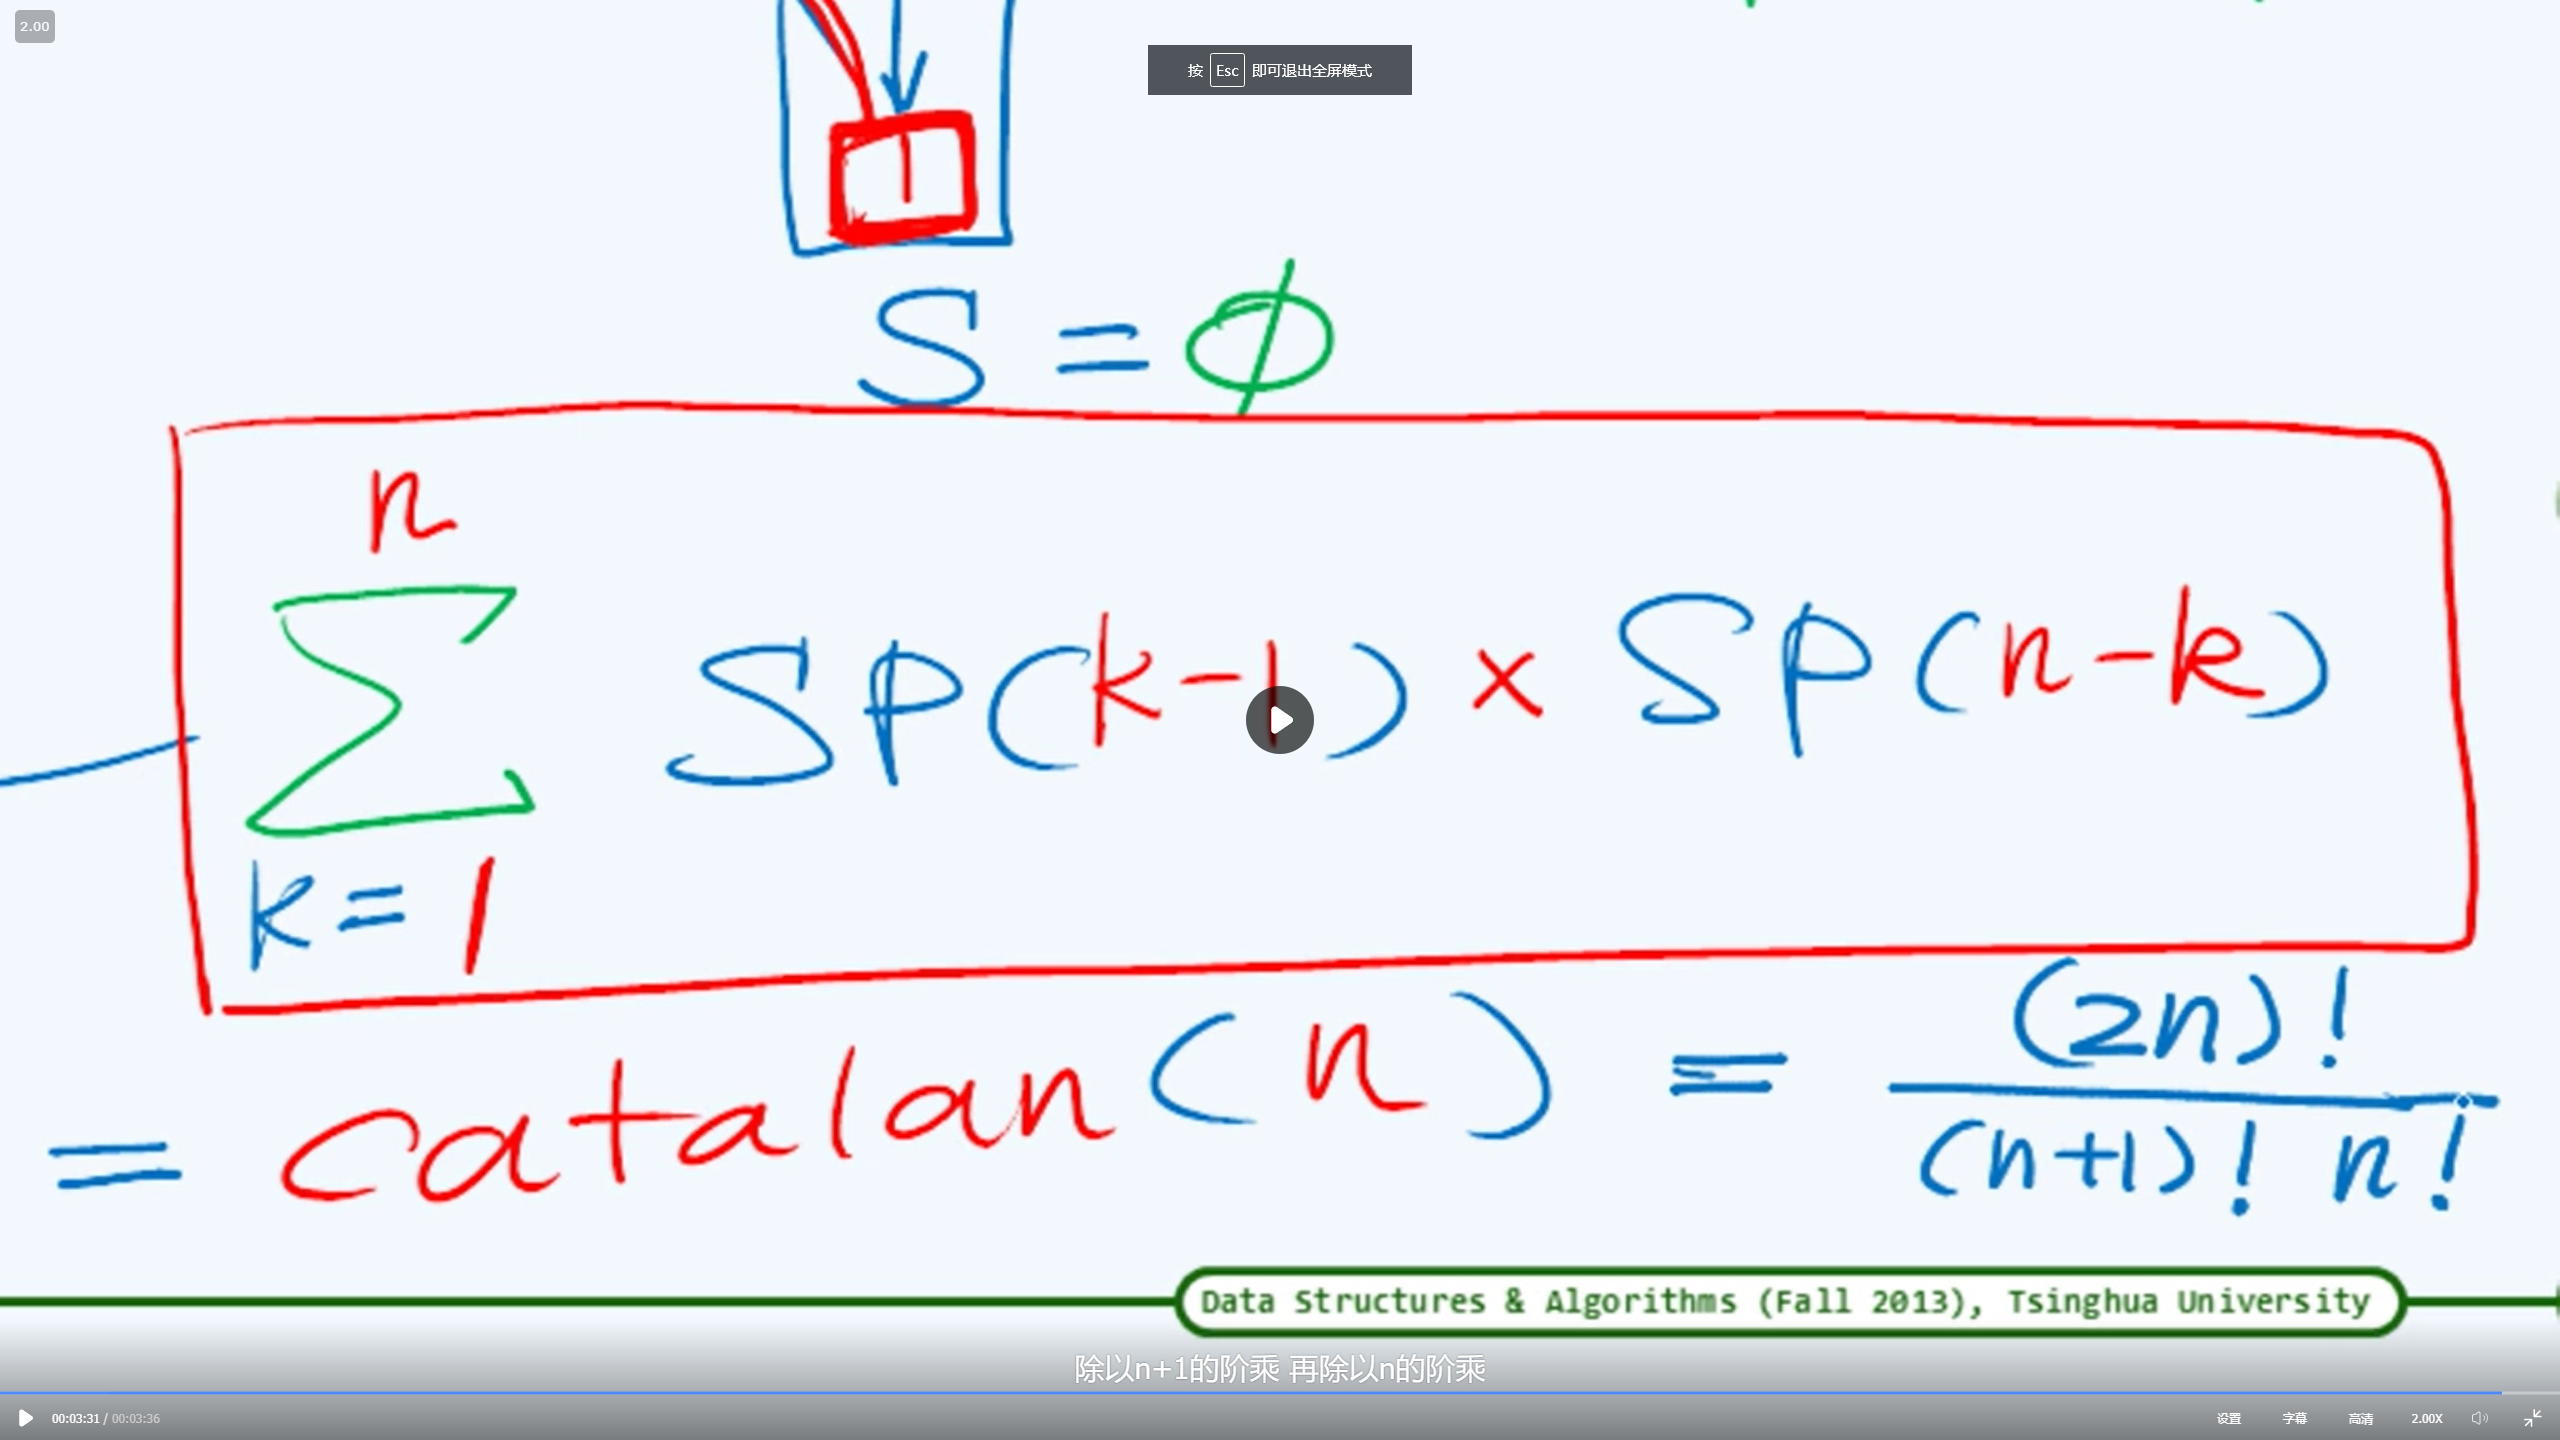 2.00
按 Esc 即可退出全屏模式
1
S = ϕ
n
∑ SP(k-1) × SP(n-k)
k = 1
= catalan(n) = (2n)! / (n+1)! n!
Data Structures & Algorithms (Fall 2013), Tsinghua University
除以n+1的阶乘 再除以n的阶乘
00:03:31 / 00:03:36 设置 字幕 高清 2.00X